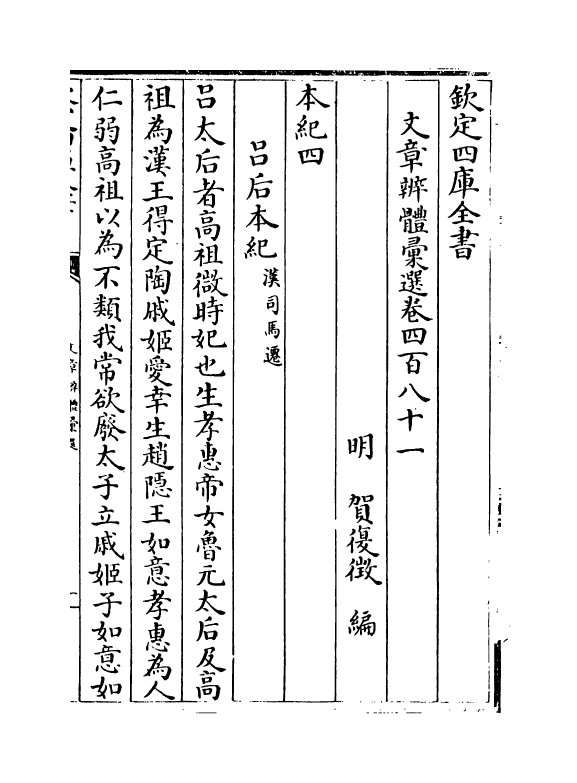 欽定四庫全書
文章辨體彙選卷四百八十一
明 賀復徵 編
本紀四
吕后本紀 漢司馬遷
吕太后者高祖微時妃也生孝惠帝女魯元太后及高
祖為漢王得定陶戚姬愛幸生趙隱王如意孝惠為人
仁弱高祖以為不類我常欲廢太子立戚姬子如意如
文章辨體彙選